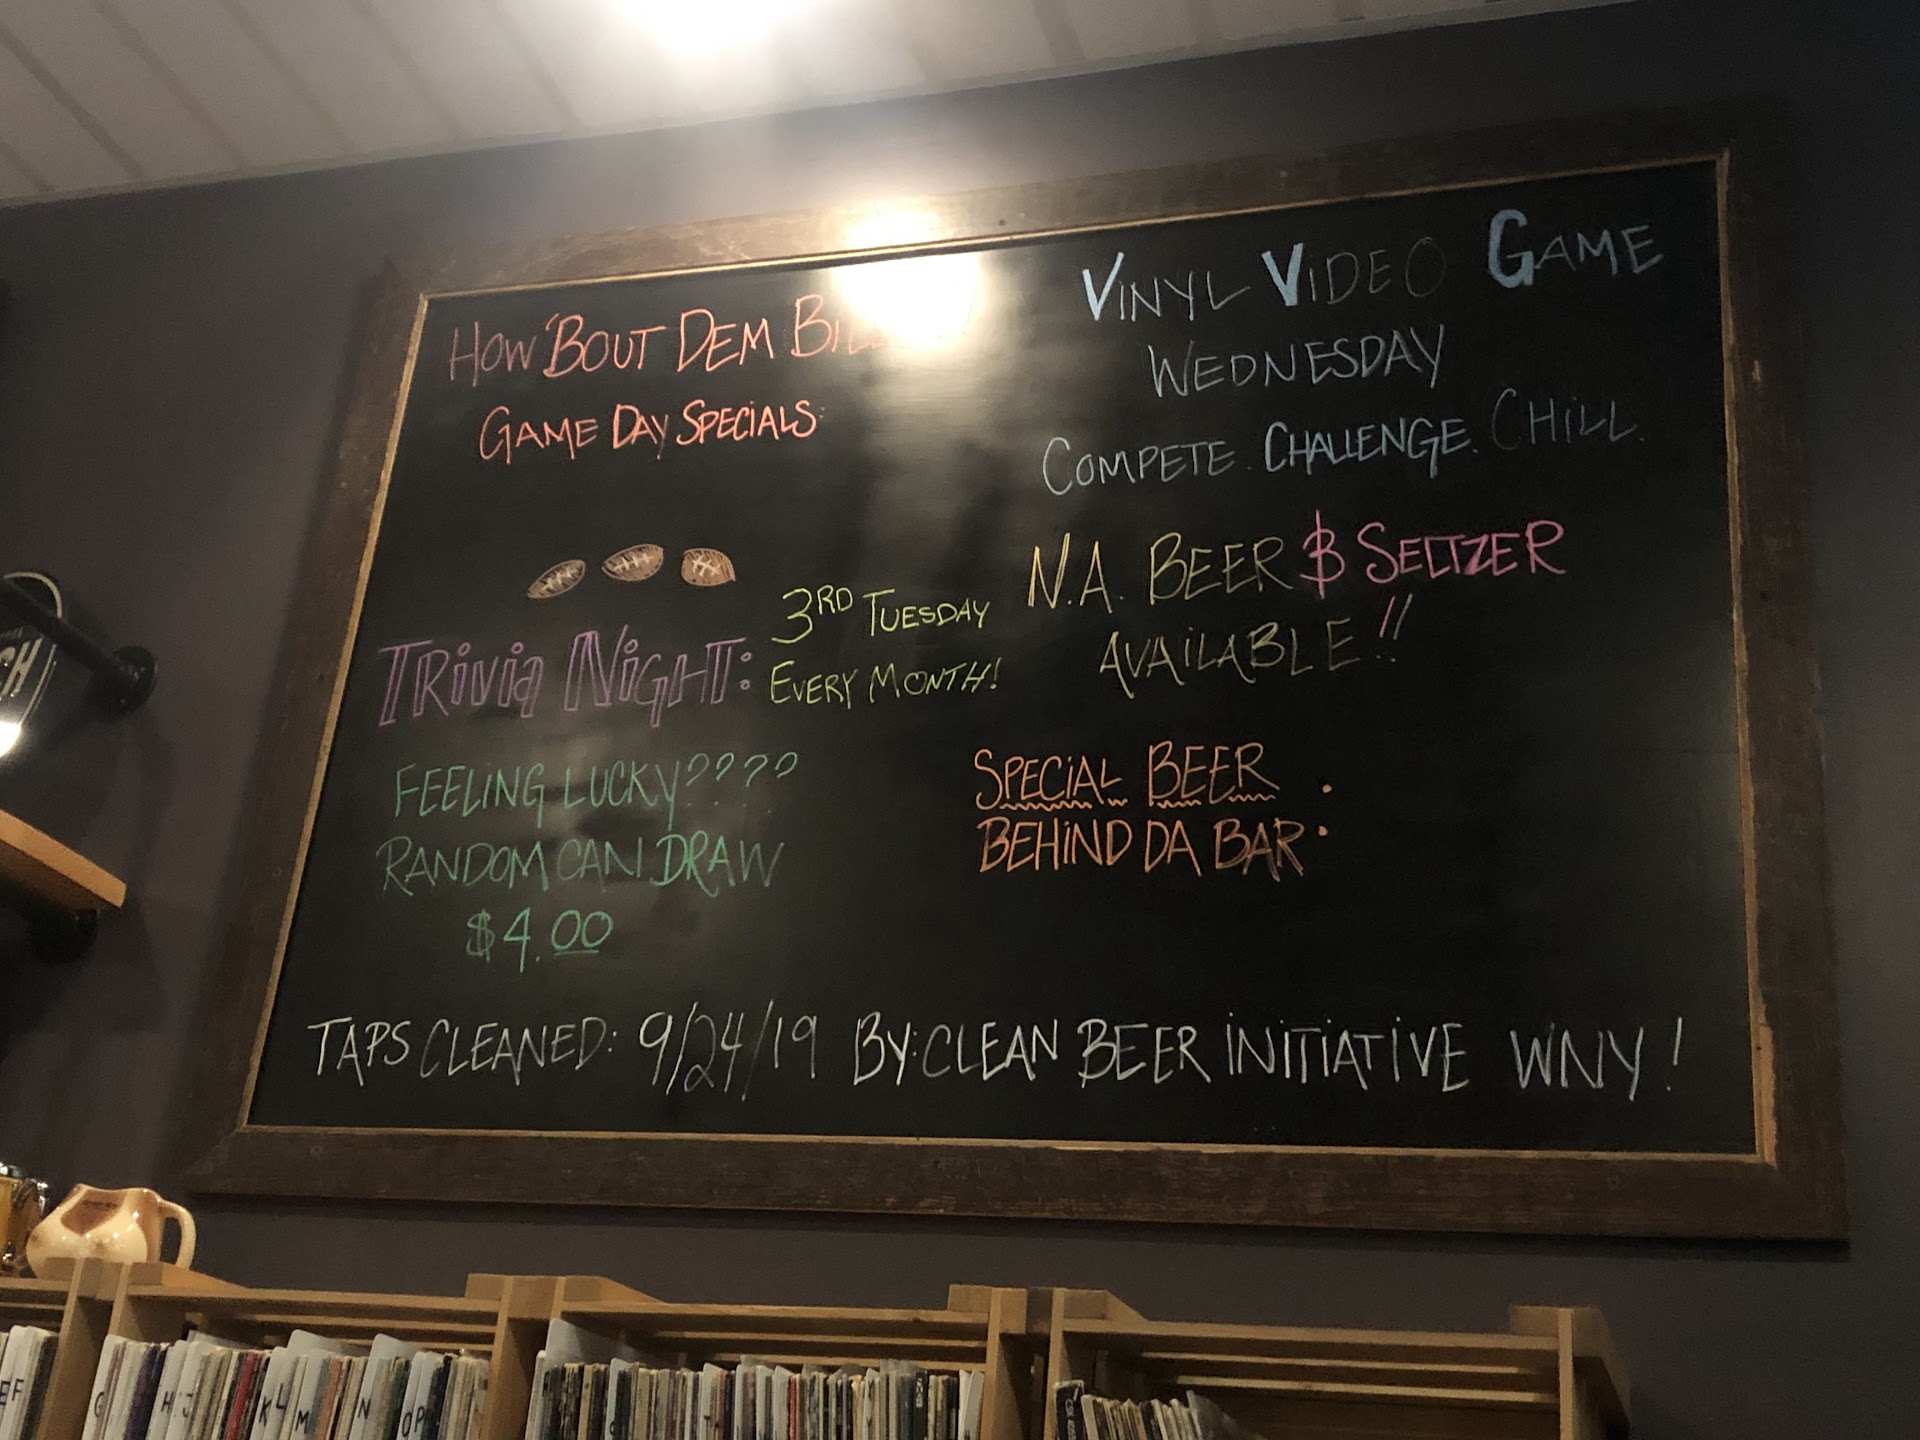 HOW 'BOUT DEM
GAME DAY SPECIALS:
TRIVIA NIGHT:
3RD TUESDAY
EVERY MONTH!
FEELING LUCKY????
RANDOM CAN DRAW
$4.00
VINYL VIDEO GAME
WEDNESDAY
COMPETE. CHALLENGE. CHILL.
N.A. BEER & SELTZER
AVAILABLE!!
SPECIAL BEER
BEHIND DA BAR:
TAPS CLEANED: 9/24/19 BY: CLEAN BEER INITIATIVE WNY!
EF
G
H
I J
K
L
M
N
OP